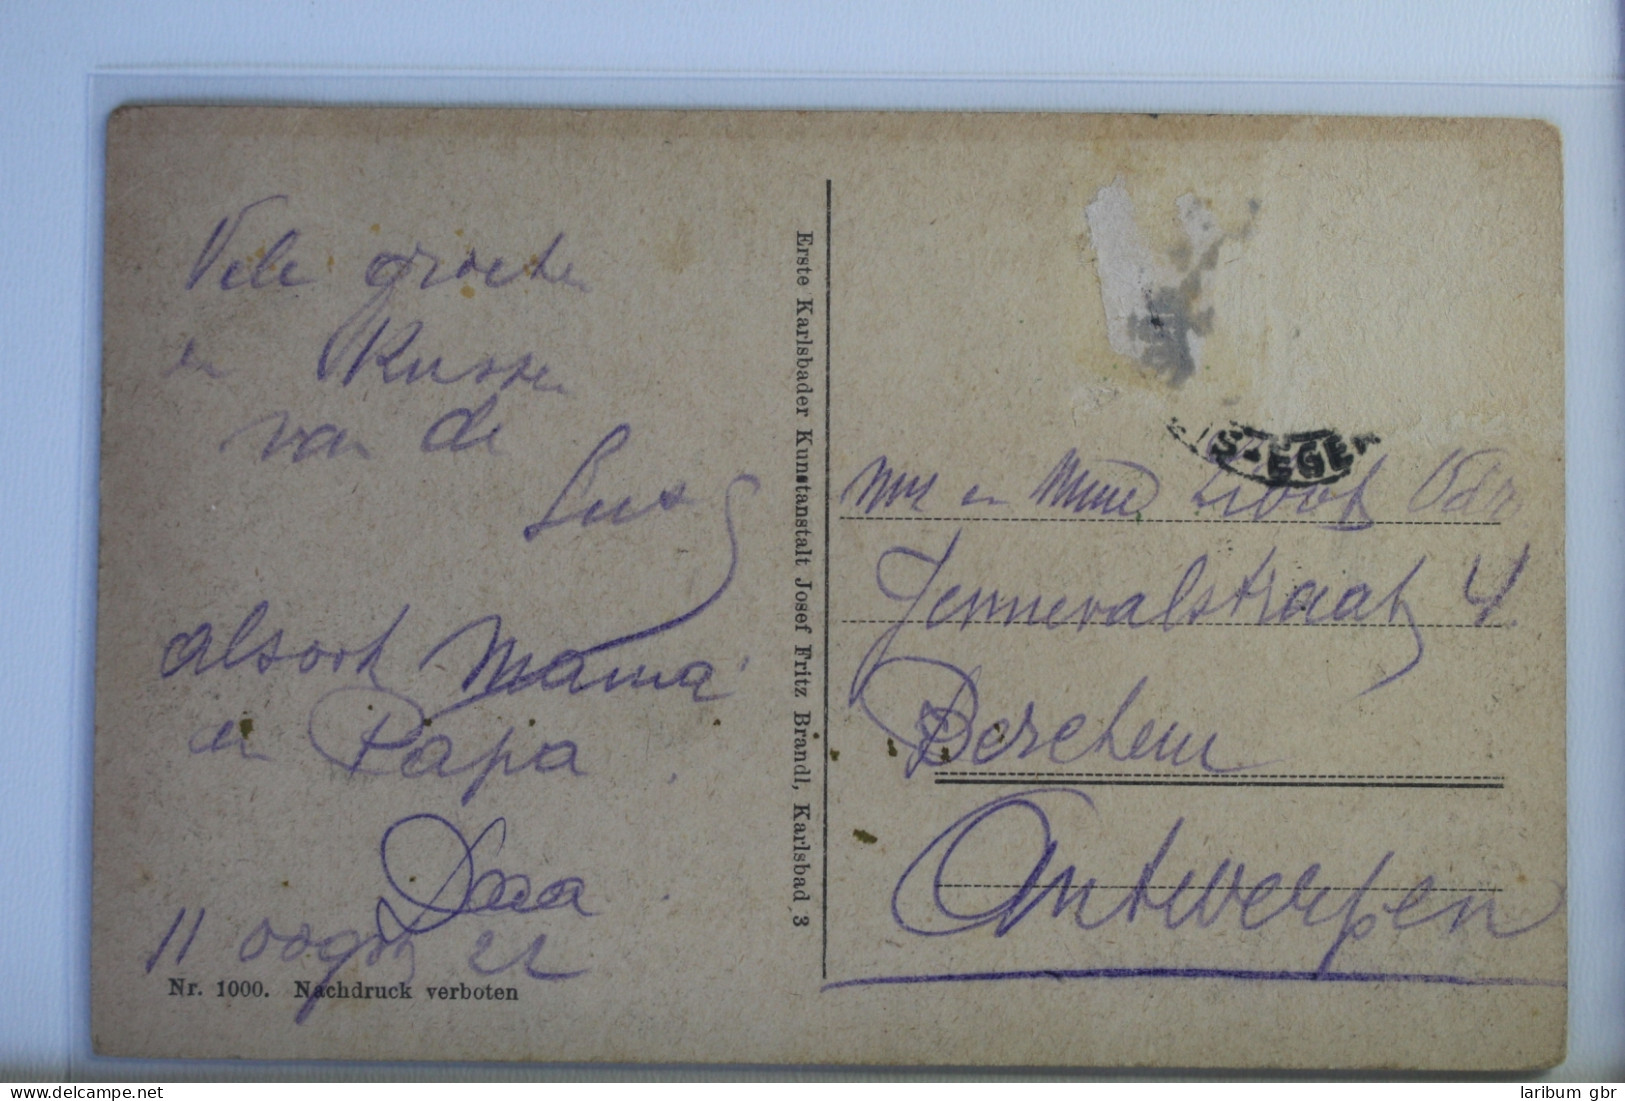 Vele groeten
en Kussen
van de
alsook Mama
en Papa
11 oogst 22
Nr. 1000. Nachdruck verboten
Erste Karlsbader Kunstanstalt Josef Fritz Brandl, Karlsbad 3
EGER
Mr en Mme
Jennevalstraat 4.
Berchem
Antwerpen
laribum gbr